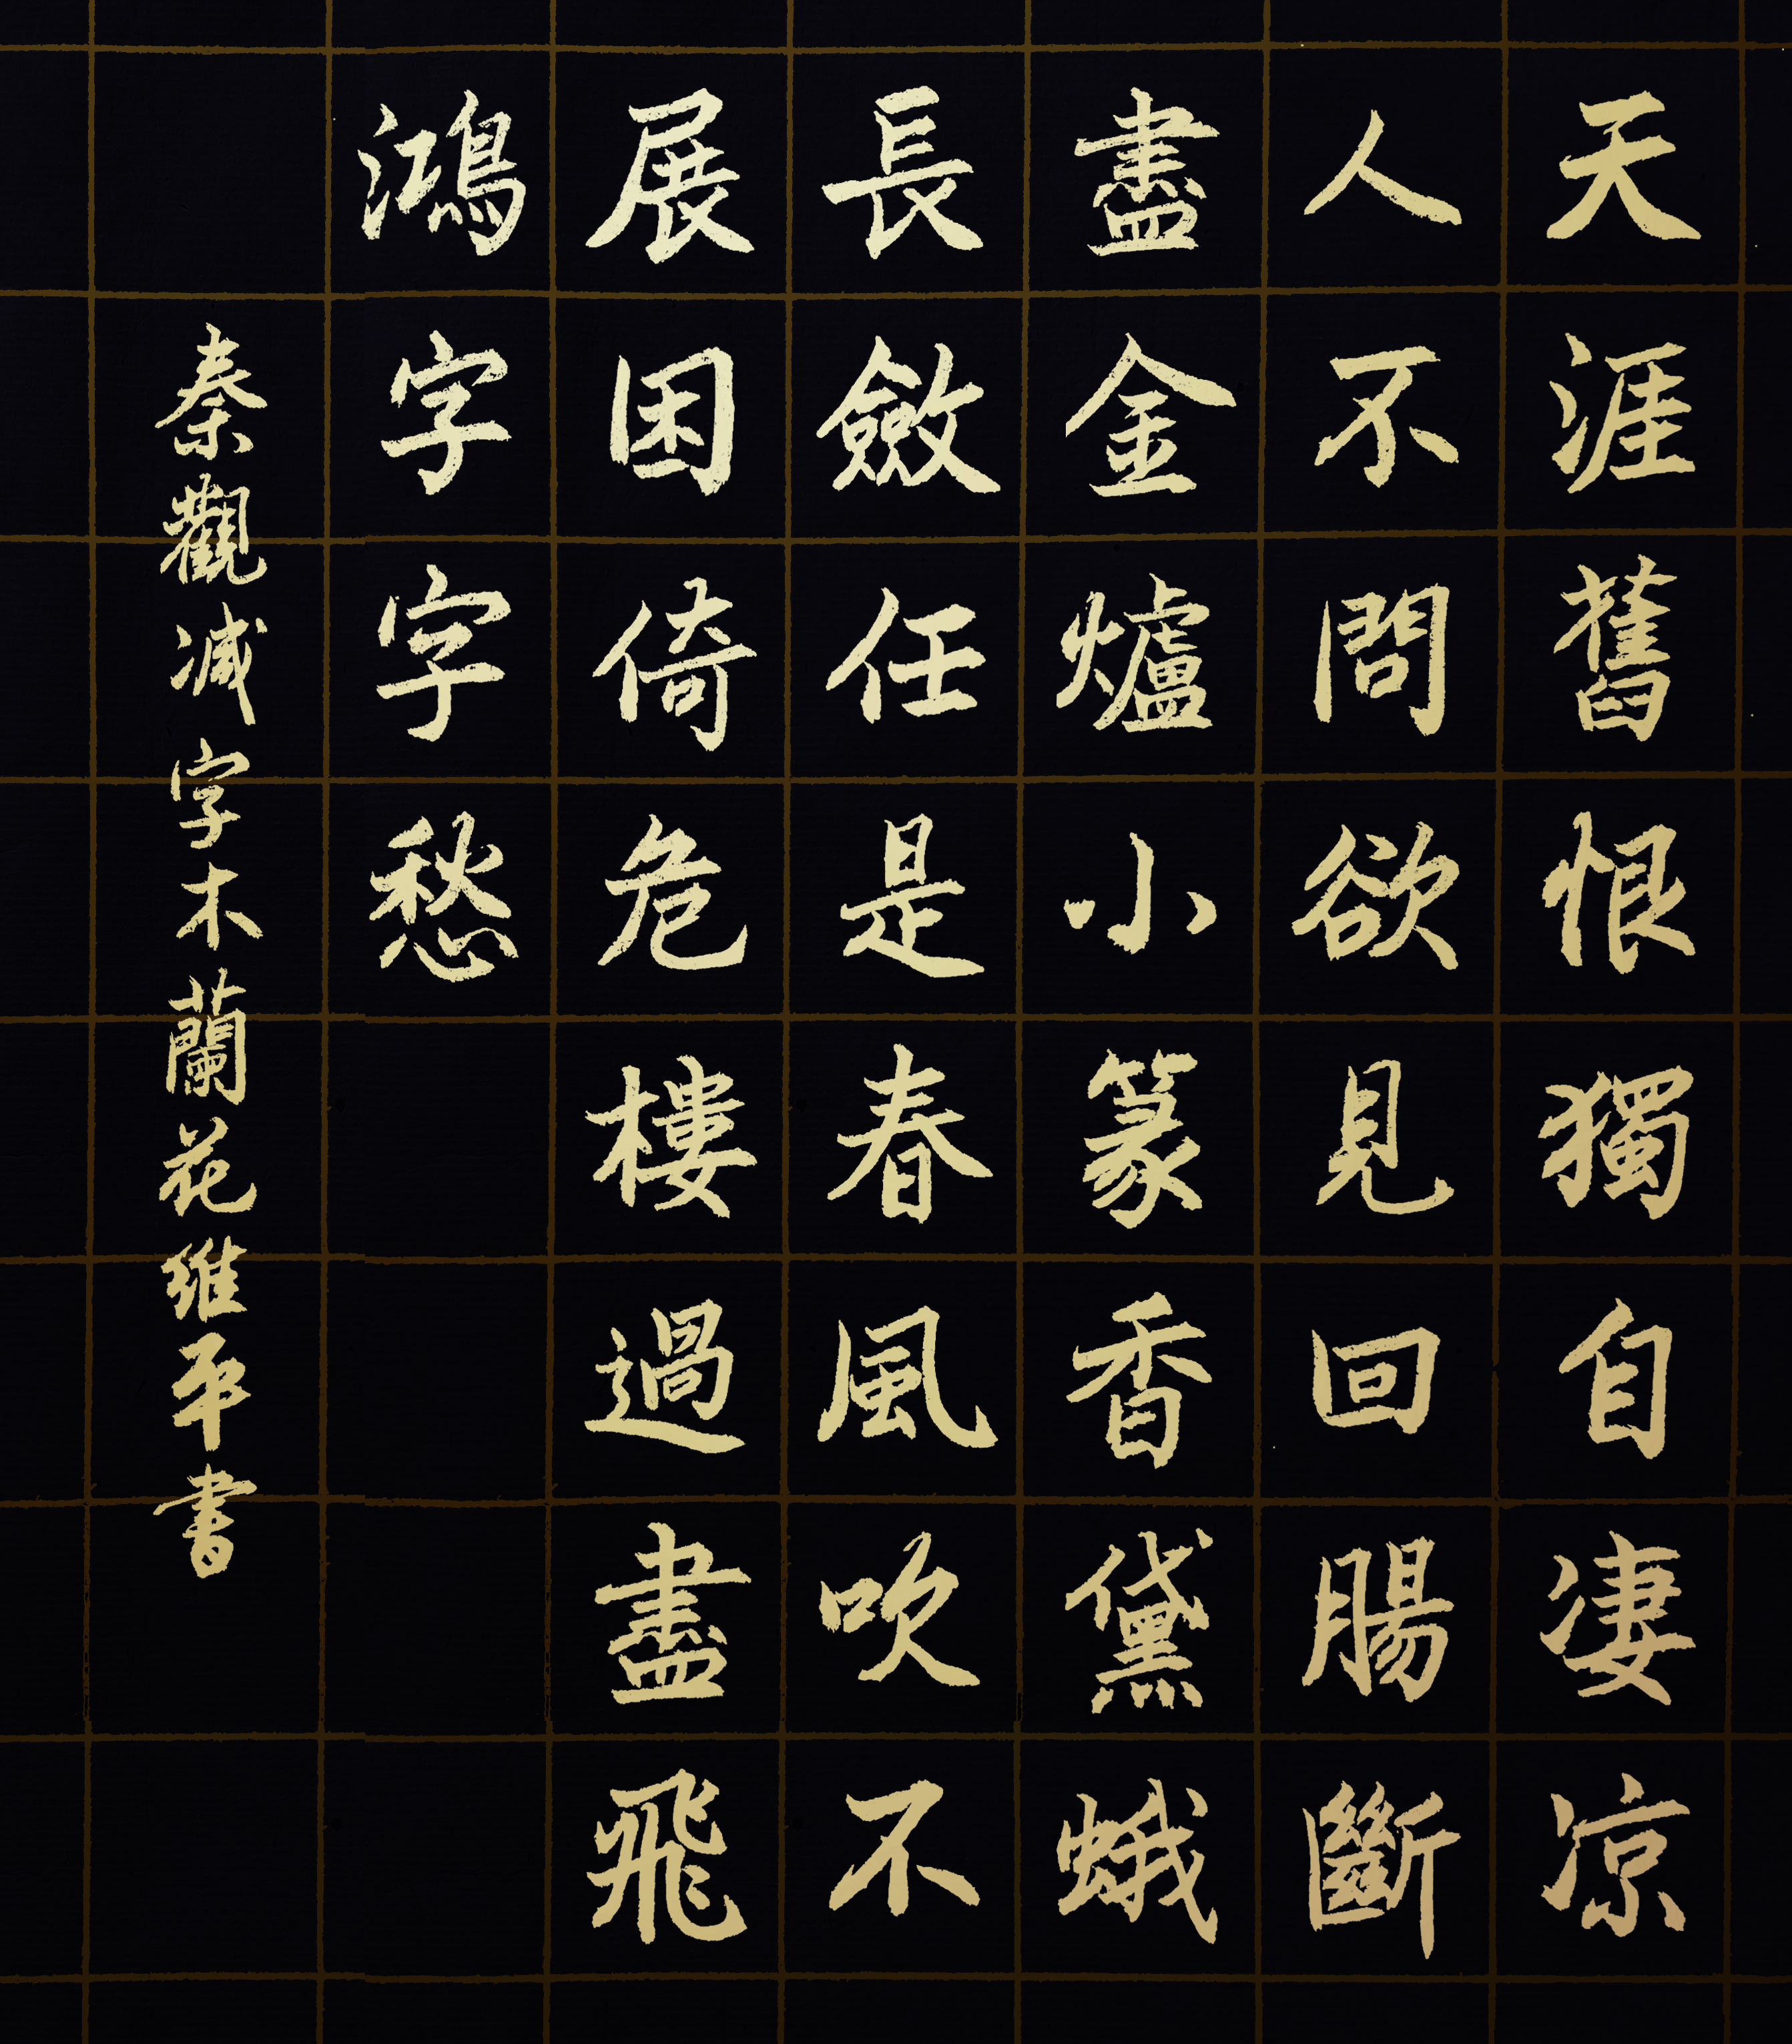 天涯舊恨獨自凄凉
人不問欲見回腸斷
盡金爐小篆香黛蛾
長斂任是春風吹不
展困倚危樓過盡飛
鴻字字愁
秦觀减字木蘭花维平書